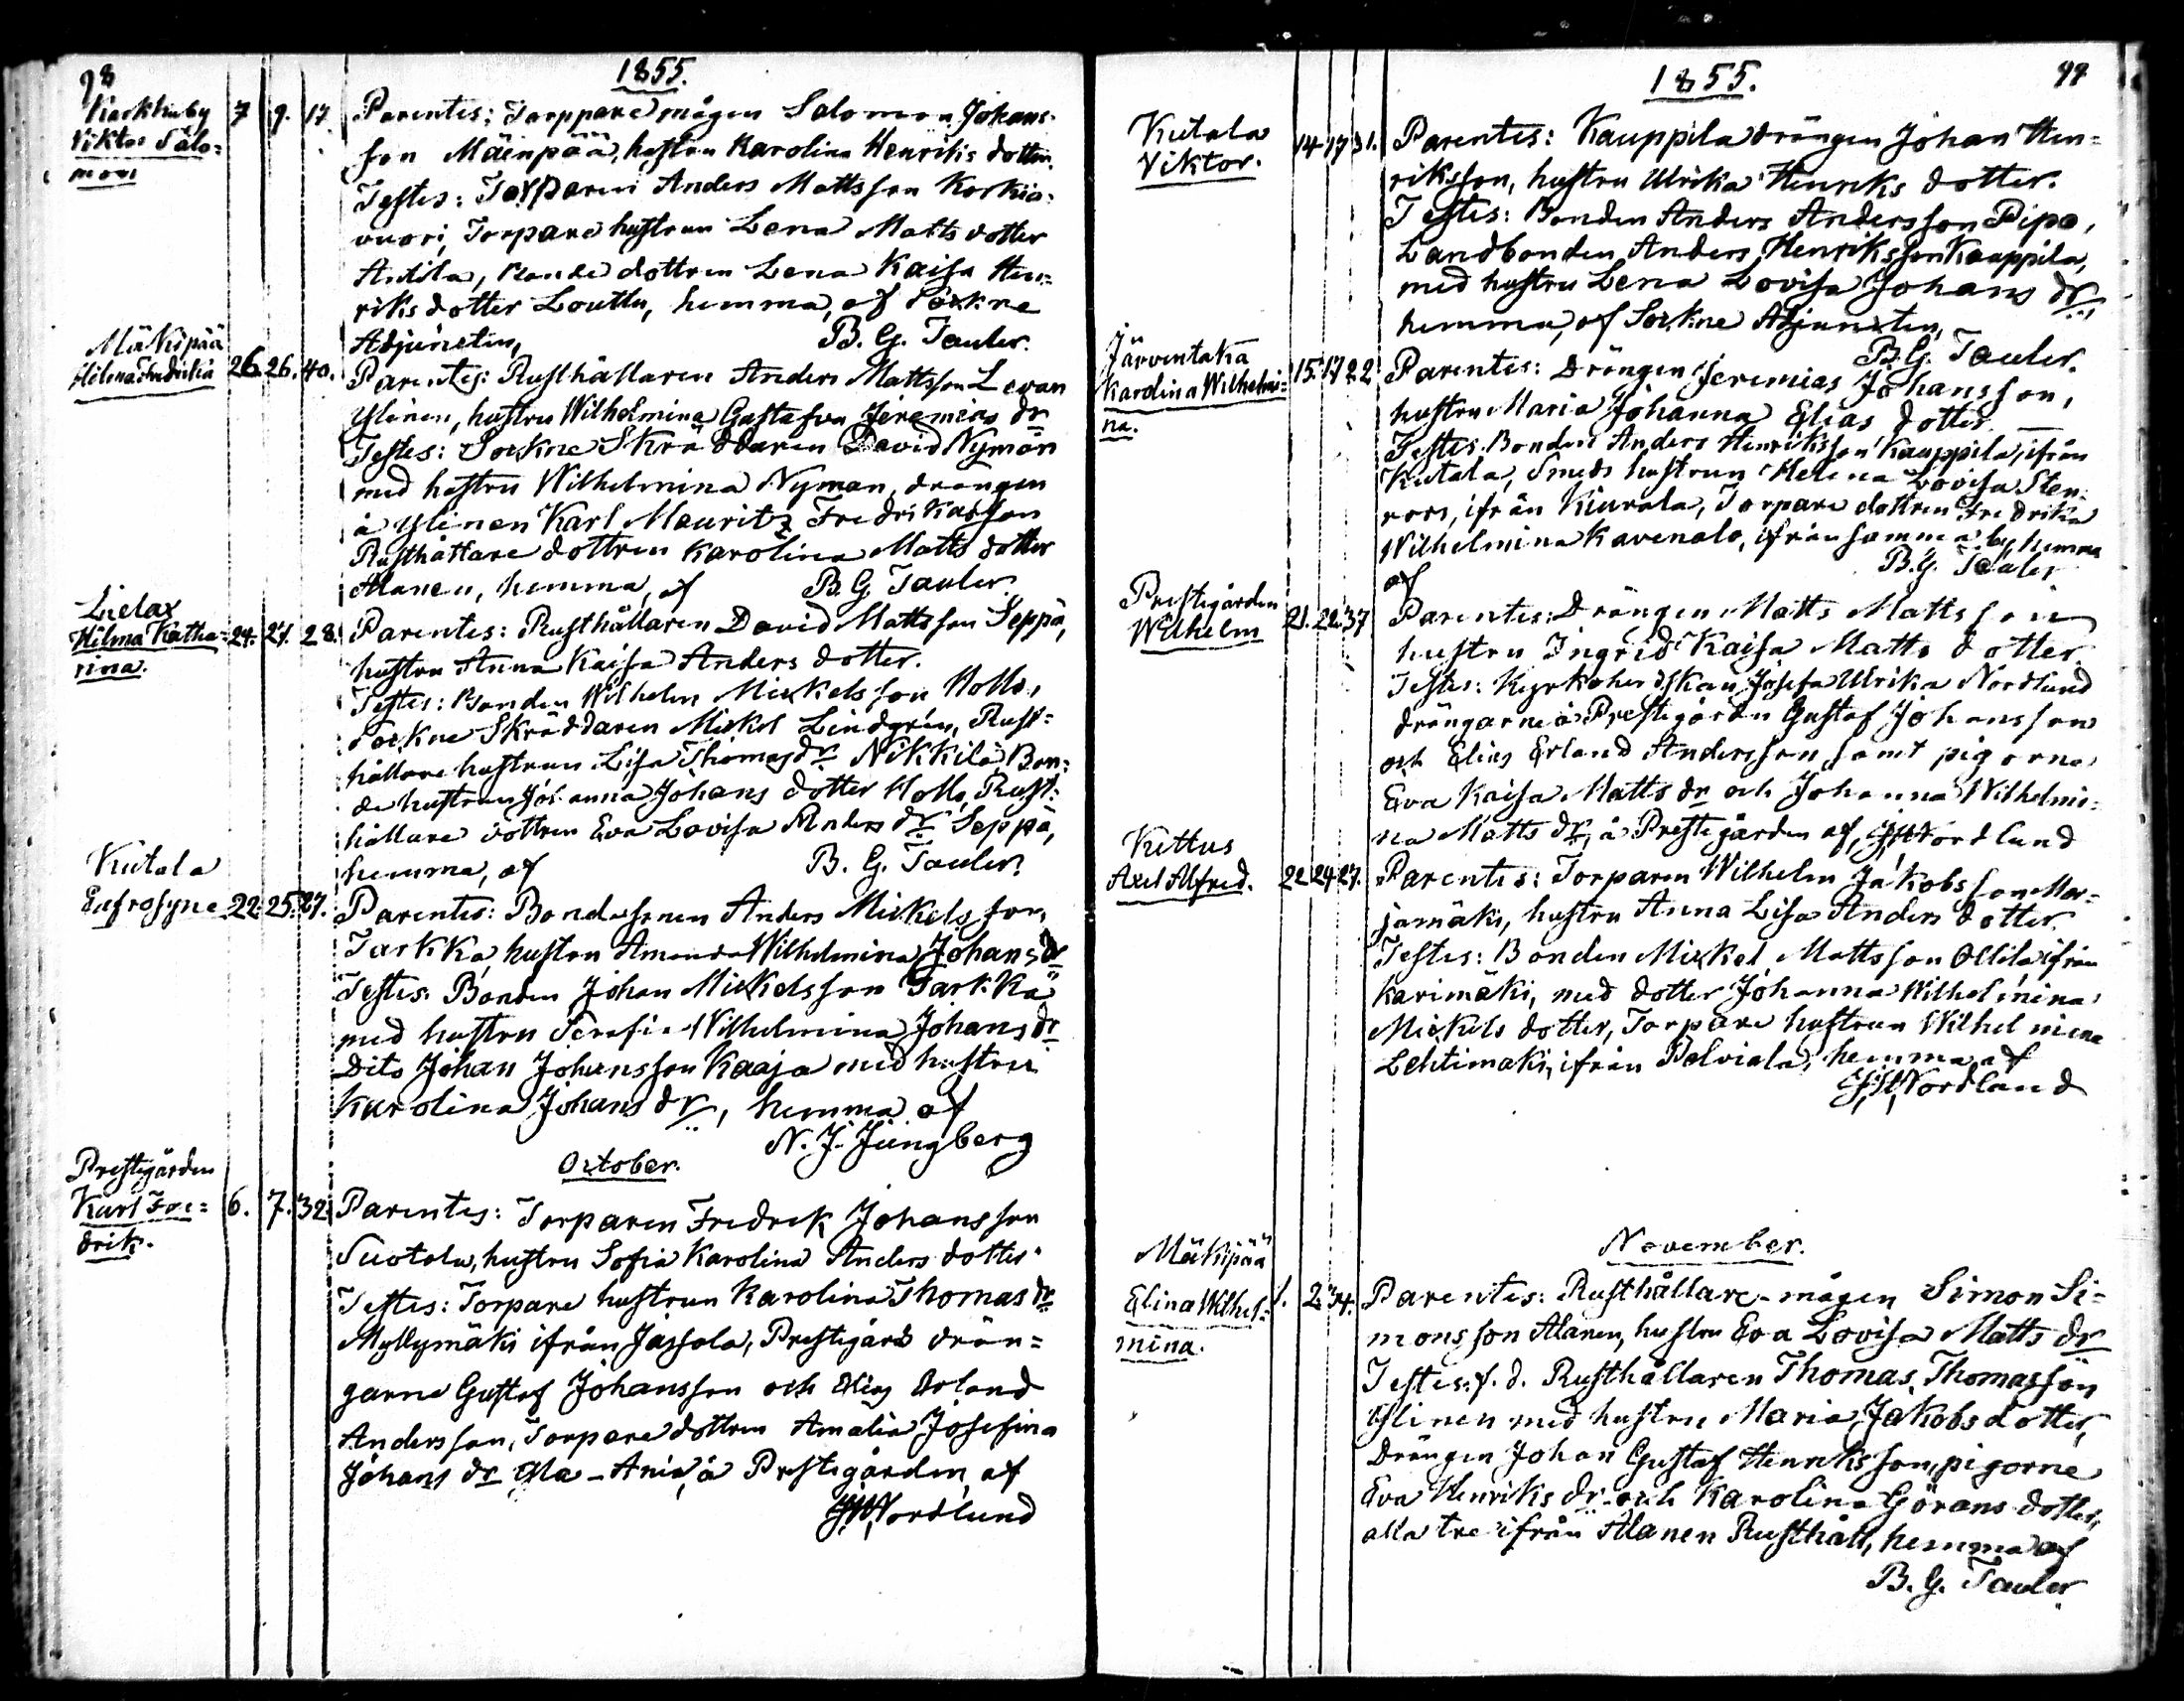 98
1855.
Karkkuby
Viktor Salo=
mon
7 9. 17.
Parentes: Torppare mågen Salomon Johans-
son Mäenpää, hustru Karolina Henriks dotter.
Testes: Torparen Anders Mattsson Korkia-
vuori, Torpare hustrun Lena Matts dotter
Antila, Bonde dottren Lena Kaisa Hen=
riks dotter Louttu, hemma, af Sockne
Adjuncten, B. G. Tauler.
Mäkipää
Helena Fredrika
26. 26. 40.
Parentes: Rusthållaren Anders Mattsson Levan
Ylinen, hustru Wilhelmina Gustafva Jeremias dr
Testes: Sockne Skräddaren David Nyman
med hustru Wilhelmina Nyman, drängen
å Ylinen Karl Mauritz Fredriksson
Rusthållare dottren Karolina Matts dotter
Alanen, hemma, af B. G. Tauler.
Lielax
Hilma Katha=
rina.
24. 27. 28.
Parentes: Rusthållaren David Mattsson Seppä,
hustru Anna Kaisa Anders dotter.
Testes: Bonden Wilhelm Mickelsson Hollo,
Sockne Skräddaren Mickel Lindgrén, Rust=
hållare hustrun Lisa Thomas dr Nikkilä, Bon=
de hustrun Johanna Johans dotter Hollo, Rust=
hållare dottren Eva Lovisa Anders dr Seppä,
hemma, af B. G. Tauler.
Kutala
Eufrosyne
22. 25. 27.
Parentes: Bondesonen Anders Mickelsson
Tarkka, hustru Amanda Wilhelmina Johans dr
Testes: Bonden Johan Mickelsson Tarkka
med hustru Serafia Wilhelmina Johans dr
Dito Johan Johansson Kaaja med hustru
Karolina Johans dr, hemma af
N. J. Jungberg
October.
Prestgården
Karl Fre=
drik.
6. 7. 32.
Parentes: Torparen Fredrik Johansson
Suotola, hustru Sofia Karolina Anders dotter
Testes: Torpare hustrun Karolina Thomas dr
Myllymäki ifrån Jassala, Prestgårds drän=
garne Gustaf Johansson och Elias Erland
Andersson, Torpare dottren Amalia Josefina
Johans dr Ala-Ania, å Prestgården, af
J.W. Nordlund
1855.
99
Kutala
Viktor.
14 17 31.
Parentes: Kauppila drängen Johan Hen=
riksson, hustru Ulrika Henriks dotter.
Testes: Bonden Anders Andersson Pipo,
Landbonden Anders Henriksson Kauppila,
med hustru Lena Lovisa Johans dr,
hemma, af Sockne Adjuncten,
B. G. Tauler.
Järventaka
Karolina Wilhelmi=
na.
15. 17 22
Parentes: Drängen Jeremias Johansson,
hustru Maria Johanna Elias dotter.
Testes: Bonden Anders Henriksson Kauppila, ifrån
Kutala, Smeds hustrun Helena Lovisa Sten-
roos, ifrån Kiurala, Torpare dottren Fredrika
Wilhelmina Kavenalo, ifrån samma by, hemma
af B. G. Tauler
Prestgården
Wilhelm
21. 22 37
Parentes: Drängen Matts Mattsson
hustru Ingrid Kaisa Matts dotter.
Testes: Kyrkoherdskan Josefa Ulrika Nordlund
drängarne å Prestgården Gustaf Johansson
och Elias Erland Andersson, samt pigorna
Eva Kaisa Matts dr och Johanna Wilhelmi=
na Matts dr, å Prestgården af, J.W. Nordlund
Kettus
Axel Alfred.
22 24 27.
Parentes: Torparen Wilhelm Jakobsson Mar=
jamäki, hustru Anna Lisa Anders dotter.
Testes: Bonden Mickel Mattsson Ollila ifrån
Karimäki, med dotter Johanna Wilhelmina
Mickels dotter, Torpare hustrun Wilhelmina
Lehtimäki, ifrån Palviala, hemma af
J.W. Nordlund
November.
Mäkipää
Elina Wilhel=
mina.
1. 2. 34.
Parentes: Rusthållare-mågen Simon Si=
monsson Alanen, hustru Eva Lovisa Matts dr
Testes: f. d. Rusthållaren Thomas Thomasson
Ylinen med hustru Maria Jakobs dotter,
Drängen Johan Gustaf Henriksson, pigorne
Eva Henriks dr och Karolina Görans dotter,
alla tre ifrån Alanen Rusthåll, hemma af
B. G. Tauler